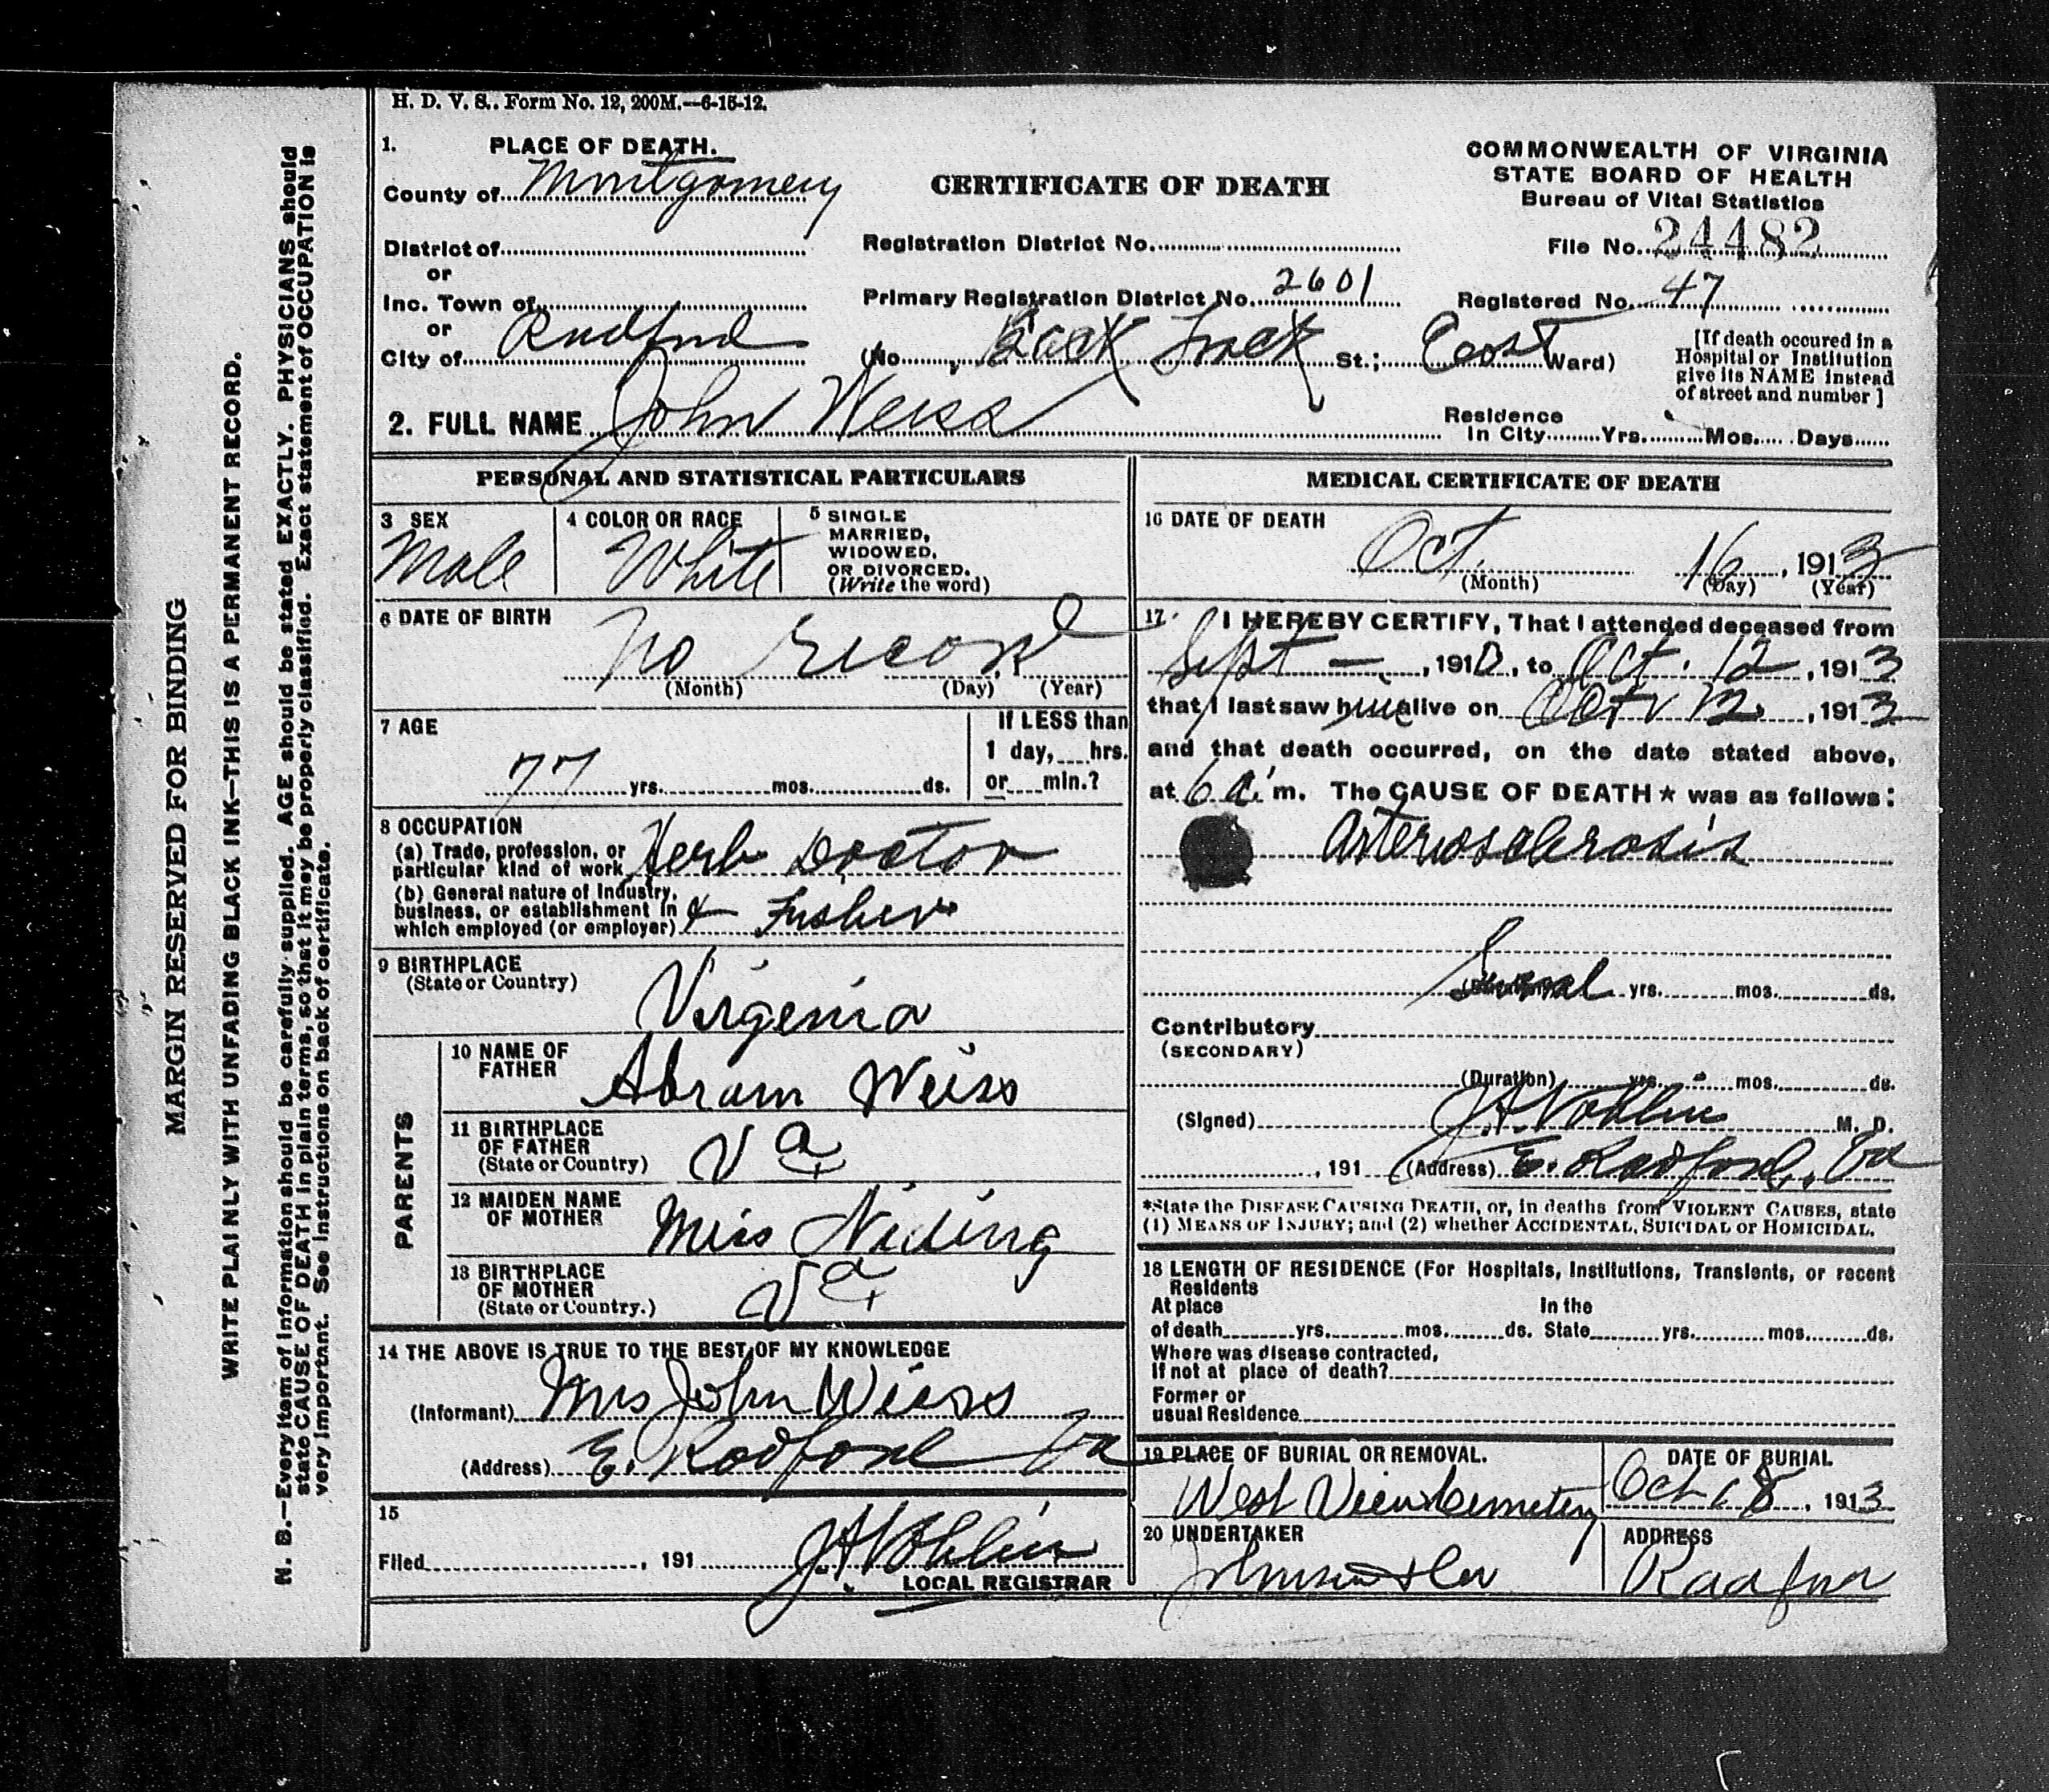 H. D. V. S.. Form No. 12, 200M.—6-15-12.
1. PLACE OF DEATH.
County of Montgomery
District of
or
Inc. Town of
or
City of Radford
CERTIFICATE OF DEATH
Registration District No.
Primary Registration District No. 2601
(No , Back Track St.; East Ward)
COMMONWEALTH OF VIRGINIA
STATE BOARD OF HEALTH
Bureau of Vital Statistics
File No. 24482
Registered No. 47
[If death occured in a
Hospital or Institution
give its NAME instead
of street and number ]
2. FULL NAME John Weiss
Residence
In City Yrs. Mos. Days
PERSONAL AND STATISTICAL PARTICULARS
3 SEX
Male
4 COLOR OR RACE
White
5 SINGLE
MARRIED,
WIDOWED,
OR DIVORCED.
(Write the word)
6 DATE OF BIRTH
No Record
(Month) (Day) (Year)
7 AGE
77 yrs. mos. ds.
If LESS than
1 day, hrs.
or min.?
8 OCCUPATION
(a) Trade, profession, or
particular kind of work Herb Doctor
(b) General nature of Industry,
business, or establishment in
which employed (or employer) & Fisher
9 BIRTHPLACE
(State or Country)
Virginia
PARENTS
10 NAME OF
FATHER
Abram Weiss
11 BIRTHPLACE
OF FATHER
(State or Country) Va
12 MAIDEN NAME
OF MOTHER
Miss
13 BIRTHPLACE
OF MOTHER
(State or Country.) Va
14 THE ABOVE IS TRUE TO THE BEST OF MY KNOWLEDGE
(Informant) Mrs John Weiss
(Address) E. Radford Va
15
Filed , 191
LOCAL REGISTRAR
MEDICAL CERTIFICATE OF DEATH
16 DATE OF DEATH
Oct. 16, 1913
(Month) (Day) (Year)
17. I HEREBY CERTIFY, That I attended deceased from
Sept — , 191 , to Oct. 12 , 1913
that I last saw him alive on Oct 12 , 1913
and that death occurred, on the date stated above,
at 6 a. m. The CAUSE OF DEATH * was as follows:
Arteriosclerosis
Several yrs. mos. ds.
Contributory
(SECONDARY)
(Duration) yrs. mos. ds.
(Signed) M. D.
, 191 (Address) E. Radford, Va
*State the DISEASE CAUSING DEATH, or, in deaths from VIOLENT CAUSES, state
(1) MEANS OF INJURY; and (2) whether ACCIDENTAL, SUICIDAL or HOMICIDAL.
18 LENGTH OF RESIDENCE (For Hospitals, Institutions, Transients, or recent
Residents
At place In the
of death yrs. mos. ds. State yrs. mos. ds.
Where was disease contracted,
If not at place of death?
Former or
usual Residence
19 PLACE OF BURIAL OR REMOVAL.
West View Cemetery
DATE OF BURIAL
Oct 18, 1913
20 UNDERTAKER
Johnson & Co
ADDRESS
Radford
MARGIN RESERVED FOR BINDING
WRITE PLAINLY WITH UNFADING BLACK INK—THIS IS A PERMANENT RECORD.
N. B.—Every item of information should be carefully supplied. AGE should be stated EXACTLY. PHYSICIANS should
state CAUSE OF DEATH in plain terms, so that it may be properly classified. Exact statement of OCCUPATION is
very important. See instructions on back of certificate.